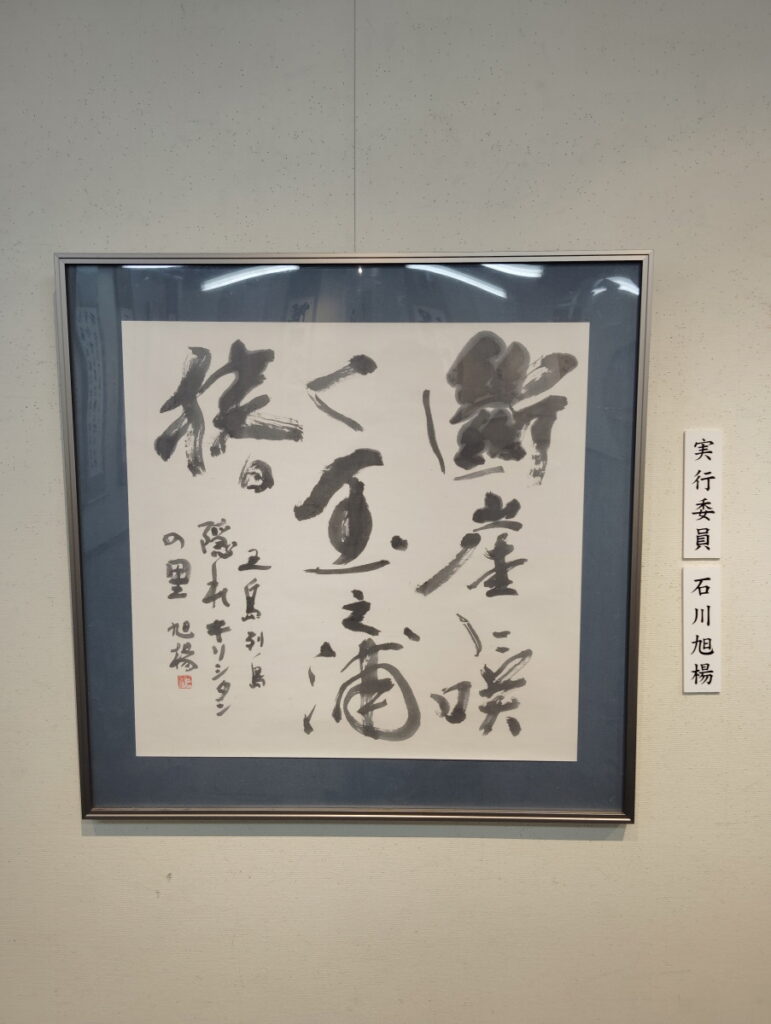 斷崖に咲
く玉之浦
椿
五島列島
隠れキリシタン
の里 旭楊
実行委員
石川旭楊